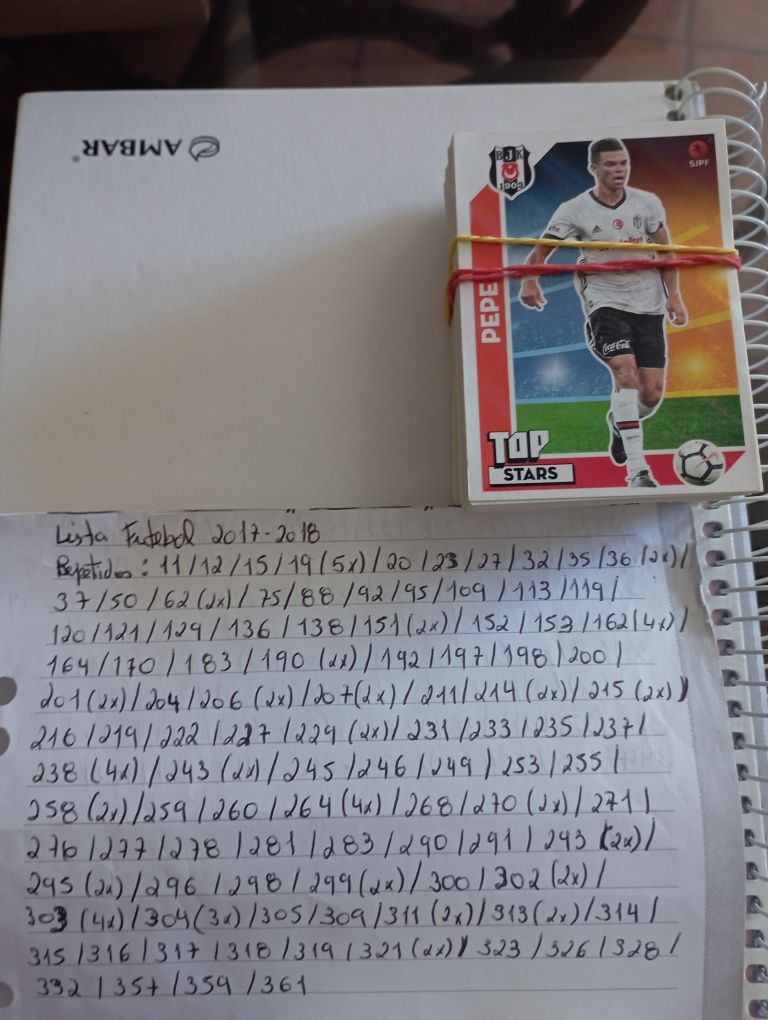 AMBAR®
BJK
1903
SJPF
PEPE
Coca-Cola
TOP
STARS
Lista Futebol 2017-2018
Repetidos: 11/12/15/19(5x)/20/23/27/32/35/36(2x)/
37/50/62(2x)/75/88/92/95/109/113/119/
120/121/129/136/138/151(2x)/152/153/162(4x)/
164/170/183/190(2x)/192/197/198/200/
201(2x)/204/206(2x)/207(2x)/211/214(2x)/215(2x)/
216/219/222/227/229(2x)/231/233/235/237/
238(4x)/243(2x)/245/246/249/253/255/
258(2x)/259/260/264(4x)/268/270(2x)/271/
276/277/278/281/283/290/291/293(2x)/
295(2x)/296/298/299(2x)/300/302(2x)/
303(4x)/304(3x)/305/309/311(2x)/313(2x)/314/
315/316/317/318/319/321(2x)/323/326/328/
332/357/359/361